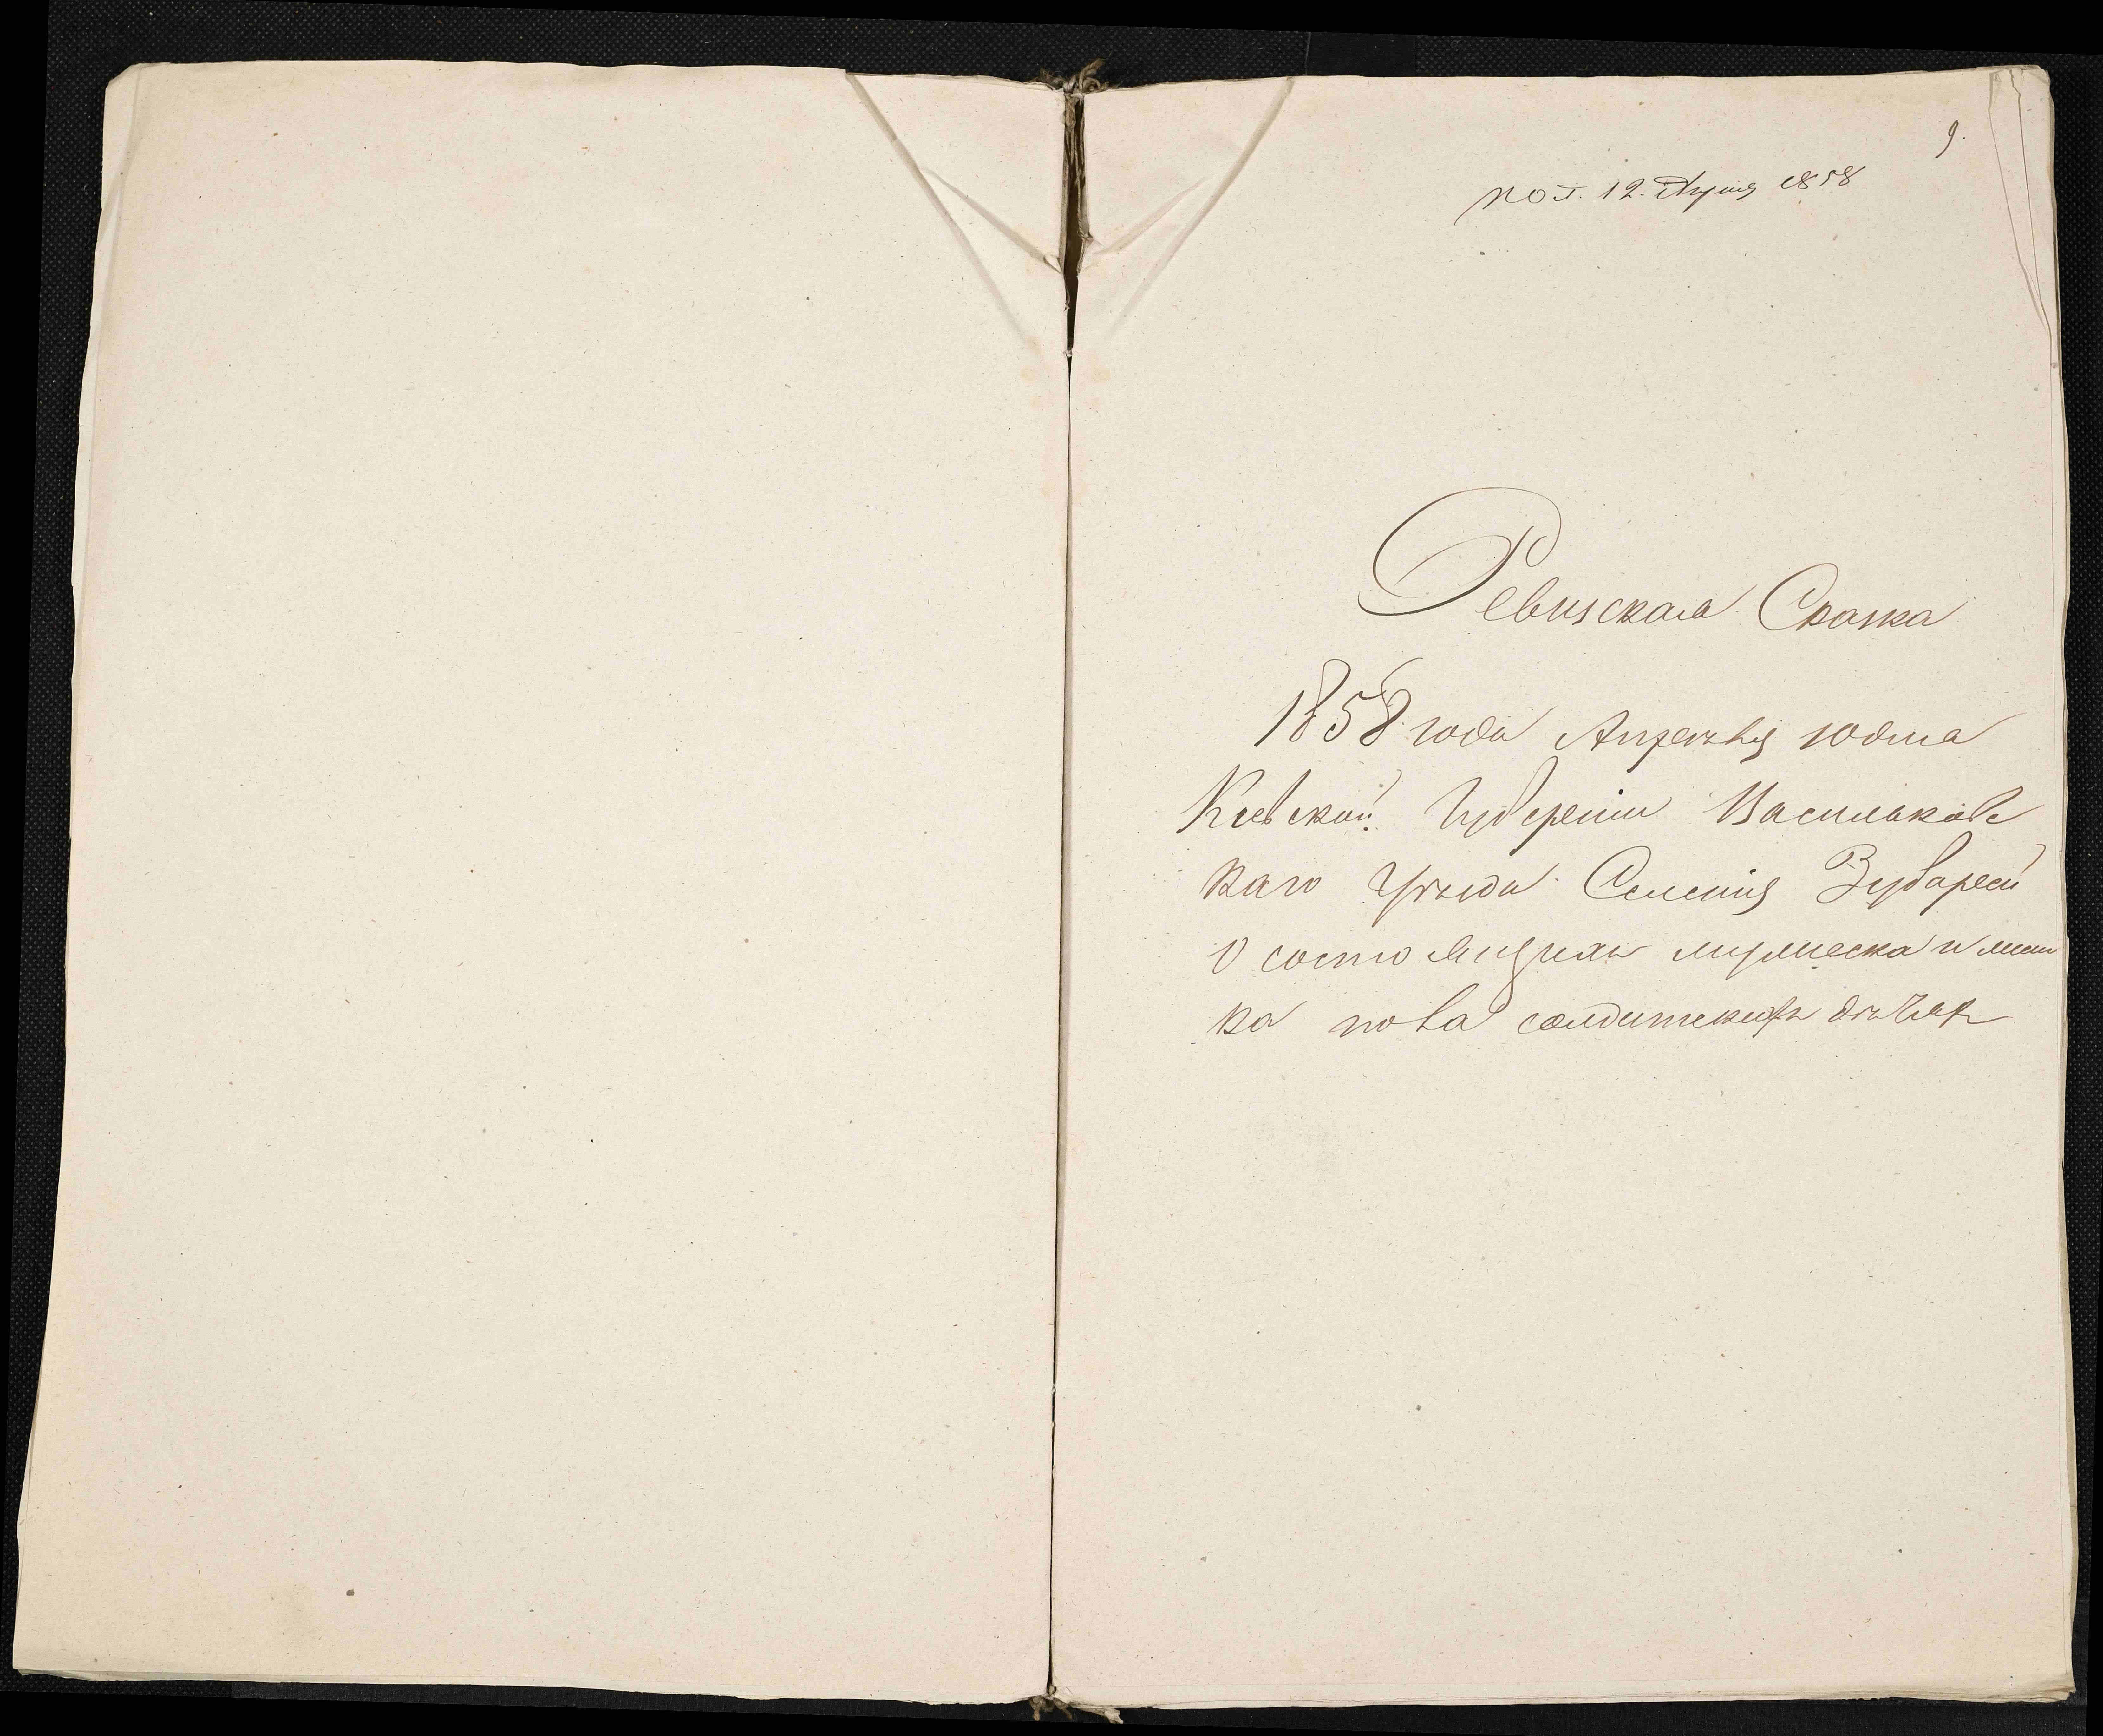 9.
пол. 12. Апреля 1858
Ревизская Сказка
1858 года Апреля 10 дня
Киевской Губернии Васильковс
каго Уезда Селения Зубарей
О состоящихъ мужеска и жен
ка пола солдатскихъ детей